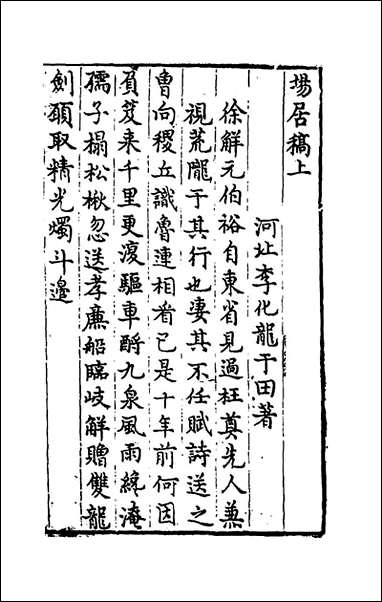 場居稿上
河北李化龍于田著
徐觧元伯裕自東省見過枉奠先人兼
視荒隴于其行也凄其不任賦詩送之
曾向稷丘識魯連相看已是十年前何因
負笈来千里更復驅車酹九泉風雨終淹
孺子榻松楸忽送孝廉船臨岐觧贈雙龍
劍願取精光燭斗邊